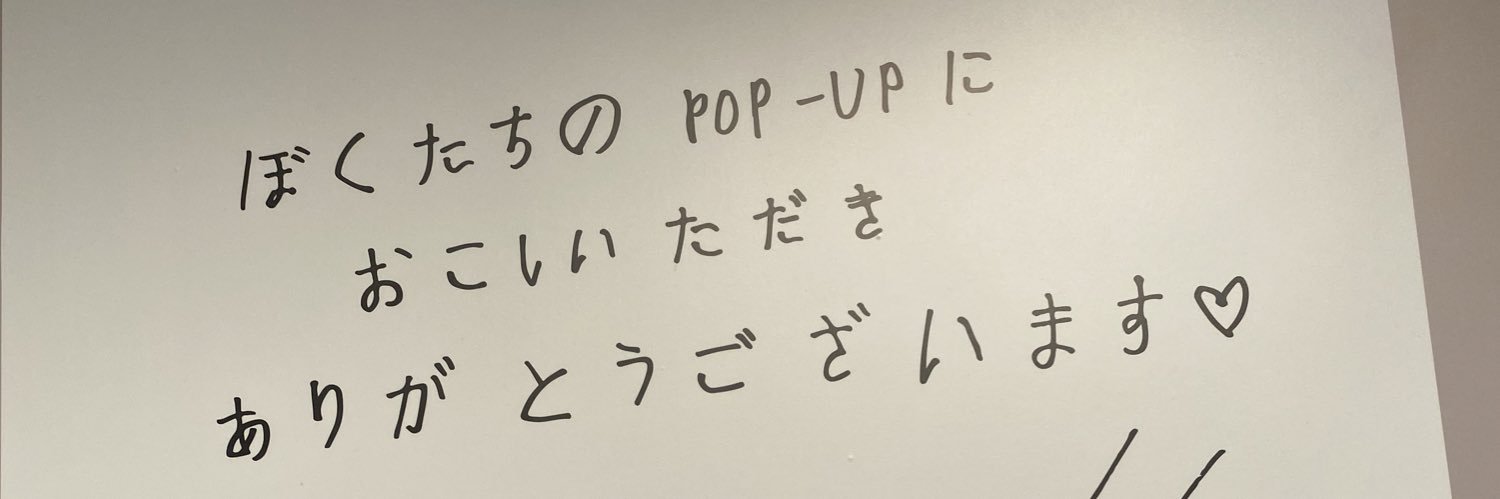 ぼくたちの POP-UPに
おこしいただき
ありがとうございます♡